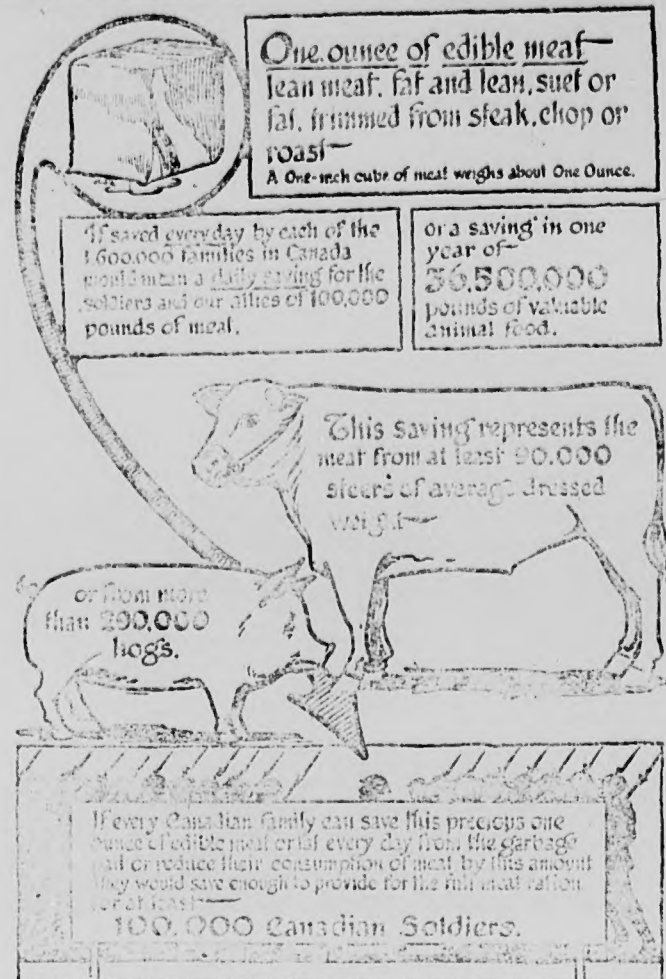 One ounce of edible meat—
lean meat, fat and lean, suet or
fat, trimmed from steak, chop or
roast—
A One-inch cube of meat weighs about One Ounce.
If saved every day by each of the
1,600,000 families in Canada
would mean a daily saving for the
soldiers and our allies of 100,000
pounds of meat.
or a saving in one
year of—
36,500,000
pounds of valuable
animal food.
This saving represents the
meat from at least 90,000
steers of average dressed
weight—
or from more
than 200,000
hogs.
If every Canadian family can save this precious one
ounce of edible meat or fat every day from the garbage
pail or reduce their consumption of meat by this amount
they would save enough to provide for the full meat ration
for at least—
100,000 Canadian Soldiers.